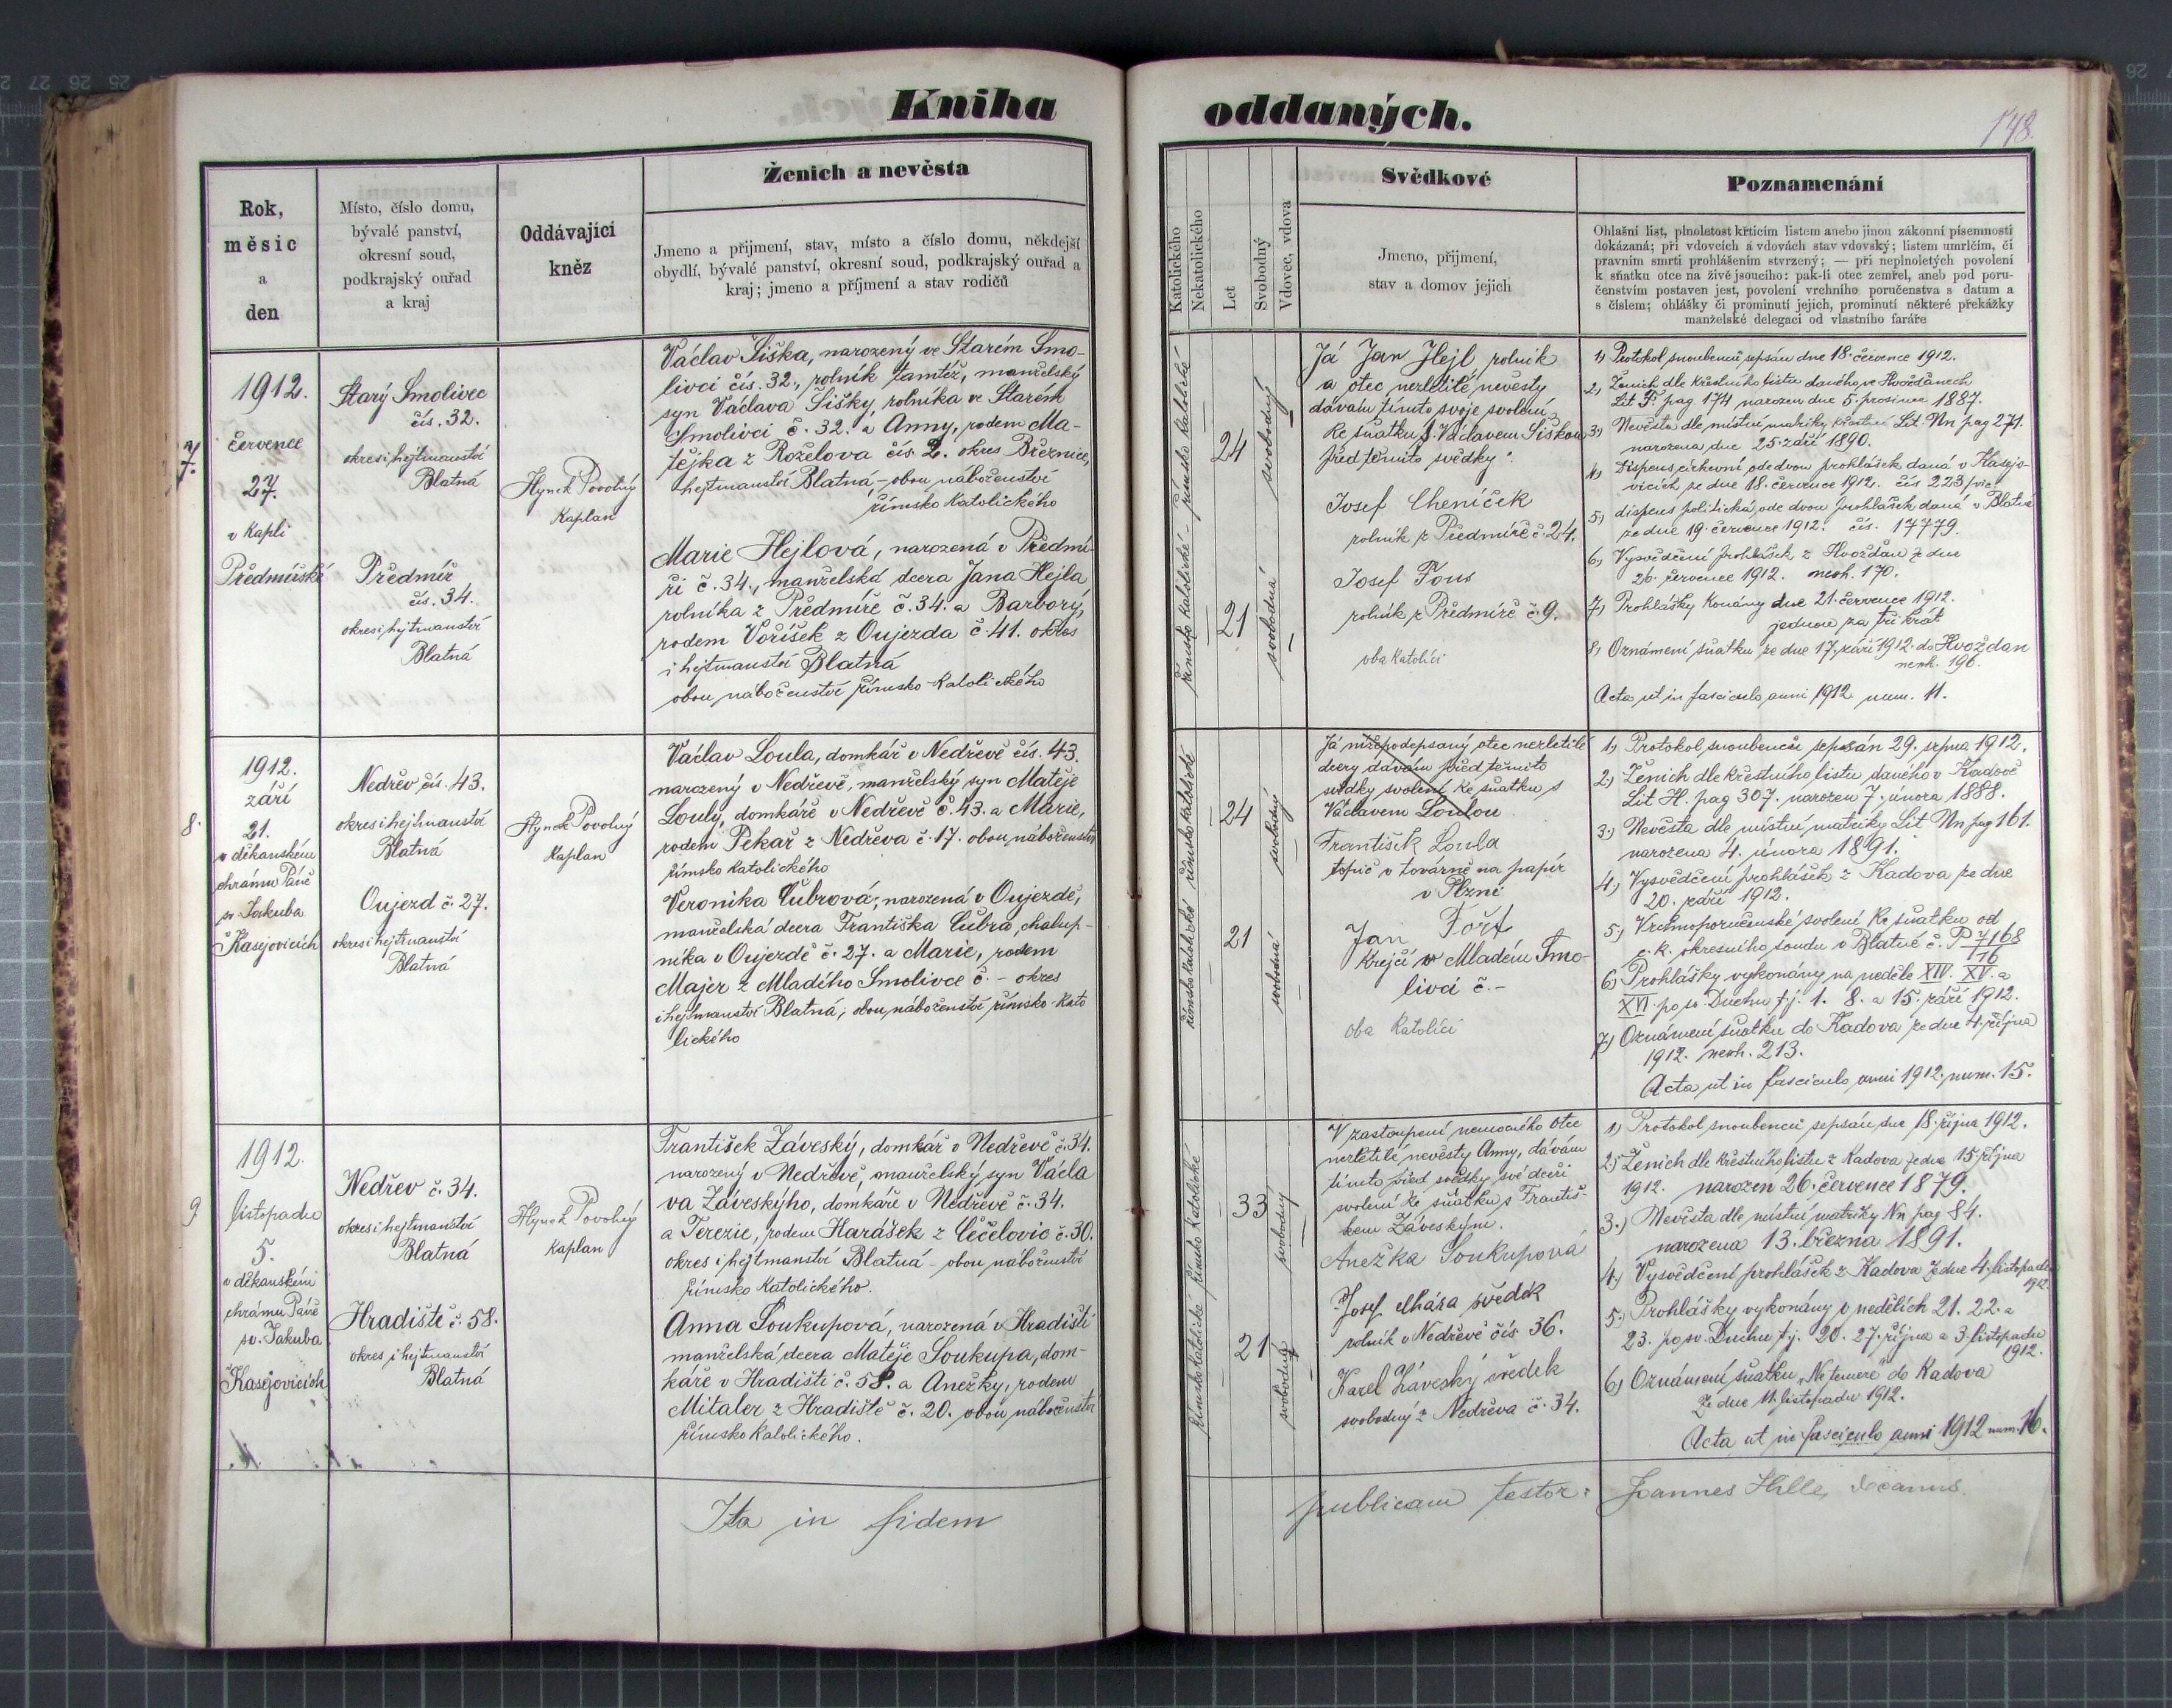 Kniha
oddaných.
148.
Rok,
měsíc
a
den
Místo, číslo domu,
bývalé panství,
okresní soud,
podkrajský ouřad
a kraj
Oddávající
kněz
Ženich a nevěsta
Jmeno a přijmení, stav, místo a číslo domu, někdejší
obydlí, bývalé panství, okresní soud, podkrajský ouřad a
kraj; jmeno a příjmení a stav rodičů
Katolického
Nekatolického
Let
Svobodný
Vdovec, vdova
Svědkové
Jmeno, přijmení,
stav a domov jejich
Poznamenání
Ohlašní list, plnoletost křticím listem anebo jinou zákonní písemností
dokázaná; při vdovcích a vdovách stav vdovský; listem umrlčím, či
pravním smrti prohlášením stvrzený; — při neplnoletých povolení
k sňatku otce na živě jsoucího: pak-li otec zemřel, aneb pod poru-
čenstvím postaven jest, povolení vrchního poručenstva s datum a
s číslem; ohlášky či prominutí jejich, prominutí některé překážky
manželské delegací od vlastního faráře
7.
1912.
července
27.
v kapli
Předmířské
Starý Smolivec
čís. 32.
okres i hejtmanství
Blatná
Předmíř
čís. 34.
okres i hejtmanství
Blatná
Hynek Povolný
Kaplan
Václav Šiška, narozený ve Starém Smo-
livci čís. 32., rolník tamtéž, manželský
syn Václava Šišky, rolníka ve Starém
Smolivci č. 32. a Anny, rodem Ma-
tějka z Roželova čís. 2. okres Březnice,
hejtmanství Blatná – obou náboženství
římsko katolického
Marie Hejlová, narozená v Předmí-
ři č. 34., manželská dcera Jana Hejla
rolníka z Předmíře č. 34. a Barbory,
rodem Voříšek z Oujezda č. 41. okres
i hejtmanství Blatná
obou náboženství římsko-katolického
římsko katolické – římsko katolické
24
21
svobodný
svobodná
Já Jan Hejl rolník
a otec nezletilé nevěsty
dávám tímto svoje svolení
ke sňatku s Václavem Šiškou
před těmito svědky:
Josef Cheníček
rolník z Předmíře č. 24.
Josef Fous
rolník z Předmíře č. 9.
oba katolíci
1) Protokol snoubenců sepsán dne 18. července 1912.
2) Ženich dle křestního listu daného ve Hvožďanech
Lit F. pag 174 narozen dne 5. prosince 1887.
3) Nevěsta dle místní matriky křestní Lit. Nn pag 271.
narozena dne 25. září 1890.
4) Dispens církevní ode dvou prohlášek daná v Kasejo-
vicích ze dne 18. července 1912. čís 223/vic.
5) dispens politická ode dvou prohlášek daná v Blatné
ze dne 19. července 1912. čís. 17779.
6) Vysvědčení prohlášek z Hvožďan ze dne
26. července 1912. nexh. 170.
7) Prohlášky konány dne 21. července 1912.
jednou za tři krát
8) Oznámení sňatku ze dne 17. září 1912 do Hvožďan
nexh. 196.
Acta ut in fasciculo anni 1912 num. 11.
8.
1912.
září
21.
v děkanském
chrámu Páně
sv. Jakuba
v Kasejovicích
Nedřev čís. 43.
okres i hejtmanství
Blatná
Oujezd č. 27.
okres i hejtmanství
Blatná
Hynek Povolný
Kaplan
Václav Loula, domkář v Nedřevě čís. 43.
narozený v Nedřevě, manželský syn Matěje
Louly, domkáře v Nedřevě č. 43. a Marie,
rodem Pekař z Nedřeva č. 17. obou náboženství
římsko katolického
Veronika Čubrová, narozená v Oujezdě,
manželská dcera Františka Čubra, chalup-
níka v Oujezdě č. 27. a Marie, rodem
Majer z Mladého Smolivce č. – okres
i hejtmanství Blatná, obou náboženství římsko-kato
lického
římsko katolické římsko katolické
24
21
svobodný
svobodná
Já níže podepsaný otec nezletilé
dcery dávám před těmito
svědky svolení ke sňatku s
Václavem Loulou
František Loula
topič v továrně na papír
v Plzni
Jan Fořt
Krejčí v Mladém Smo-
livci č. –
oba katolíci
1) Protokol snoubenců sepsán 29. srpna 1912.
2) Ženich dle křestního listu daného v Kadově
Lit H. pag 307. narozen 7. února 1888.
3) Nevěsta dle místní matriky Lit Nn pag 161.
narozena 4. února 1891.
4) Vysvědčení prohlášek z Kadova ze dne
20. září 1912.
5) Vrchnoporučenské svolení ke sňatku od
c. k. okresního soudu v Blatné č. P 7 168
/16
6) Prohlášky vykonány na neděle XIV. XV. a
XVI. po sv. Duchu t. j. 1. 8. a 15. září 1912.
7) Oznámení sňatku do Kadova ze dne 4. října
1912. nexh. 213.
Acta ut in fasciculo anni 1912. num. 15.
9
1912.
listopadu
5.
v děkanském
chrámu Páně
sv. Jakuba
v Kasejovicích
Nedřev č. 34.
okres i hejtmanství
Blatná
Hradiště č. 58.
okres i hejtmanství
Blatná
Hynek Povolný
Kaplan
František Záveský, domkář v Nedřevě č. 34.
narozený v Nedřevě, manželský syn Václa
va Záveskýho, domkáře v Nedřevě č. 34.
a Terezie, rodem Harášek z Čečelovic č. 30.
okres i hejtmanství Blatná – obou náboženství
římsko katolického.
Anna Soukupová, narozená v Hradišti
manželská dcera Matěje Soukupa, dom-
káře v Hradišti č. 58. a Anežky, rodem
Mitaler z Hradiště č. 20. obou náboženství
římsko katolického.
římsko katolické římsko katolické
33
21
svobodný
svobodná
V zastoupení nemocného otce
nezletilé nevěsty Anny, dávám
tímto před svědky své dceři
svolení ke sňatku s Františ-
kem Záveským.
Anežka Soukupová
Josef Mháza svědek
rolník v Nedřevě čís. 36.
Karel Záveský svědek
svobodný z Nedřeva č. 34.
1) Protokol snoubenců sepsán dne 18. října 1912.
2) Ženich dle křestního listu z Kadova ze dne 15. října
1912. narozen 26. července 1879.
3.) Nevěsta dle místní matriky Nn pag 84.
narozena 13. března 1891.
4) Vysvědčení prohlášek z Kadova ze dne 4. listopadu
1912.
5) Prohlášky vykonány v nedělích 21. 22. a
23. po sv. Duchu t. j. 20. 27. října a 3. listopadu
1912.
6) Oznámení sňatku „Ne temere" do Kadova
ze dne 11. listopadu 1912.
Acta ut in fasciculo anni 1912 num. 16.
Ita in fidem
publicam testor:
Joannes Hille, decanus.